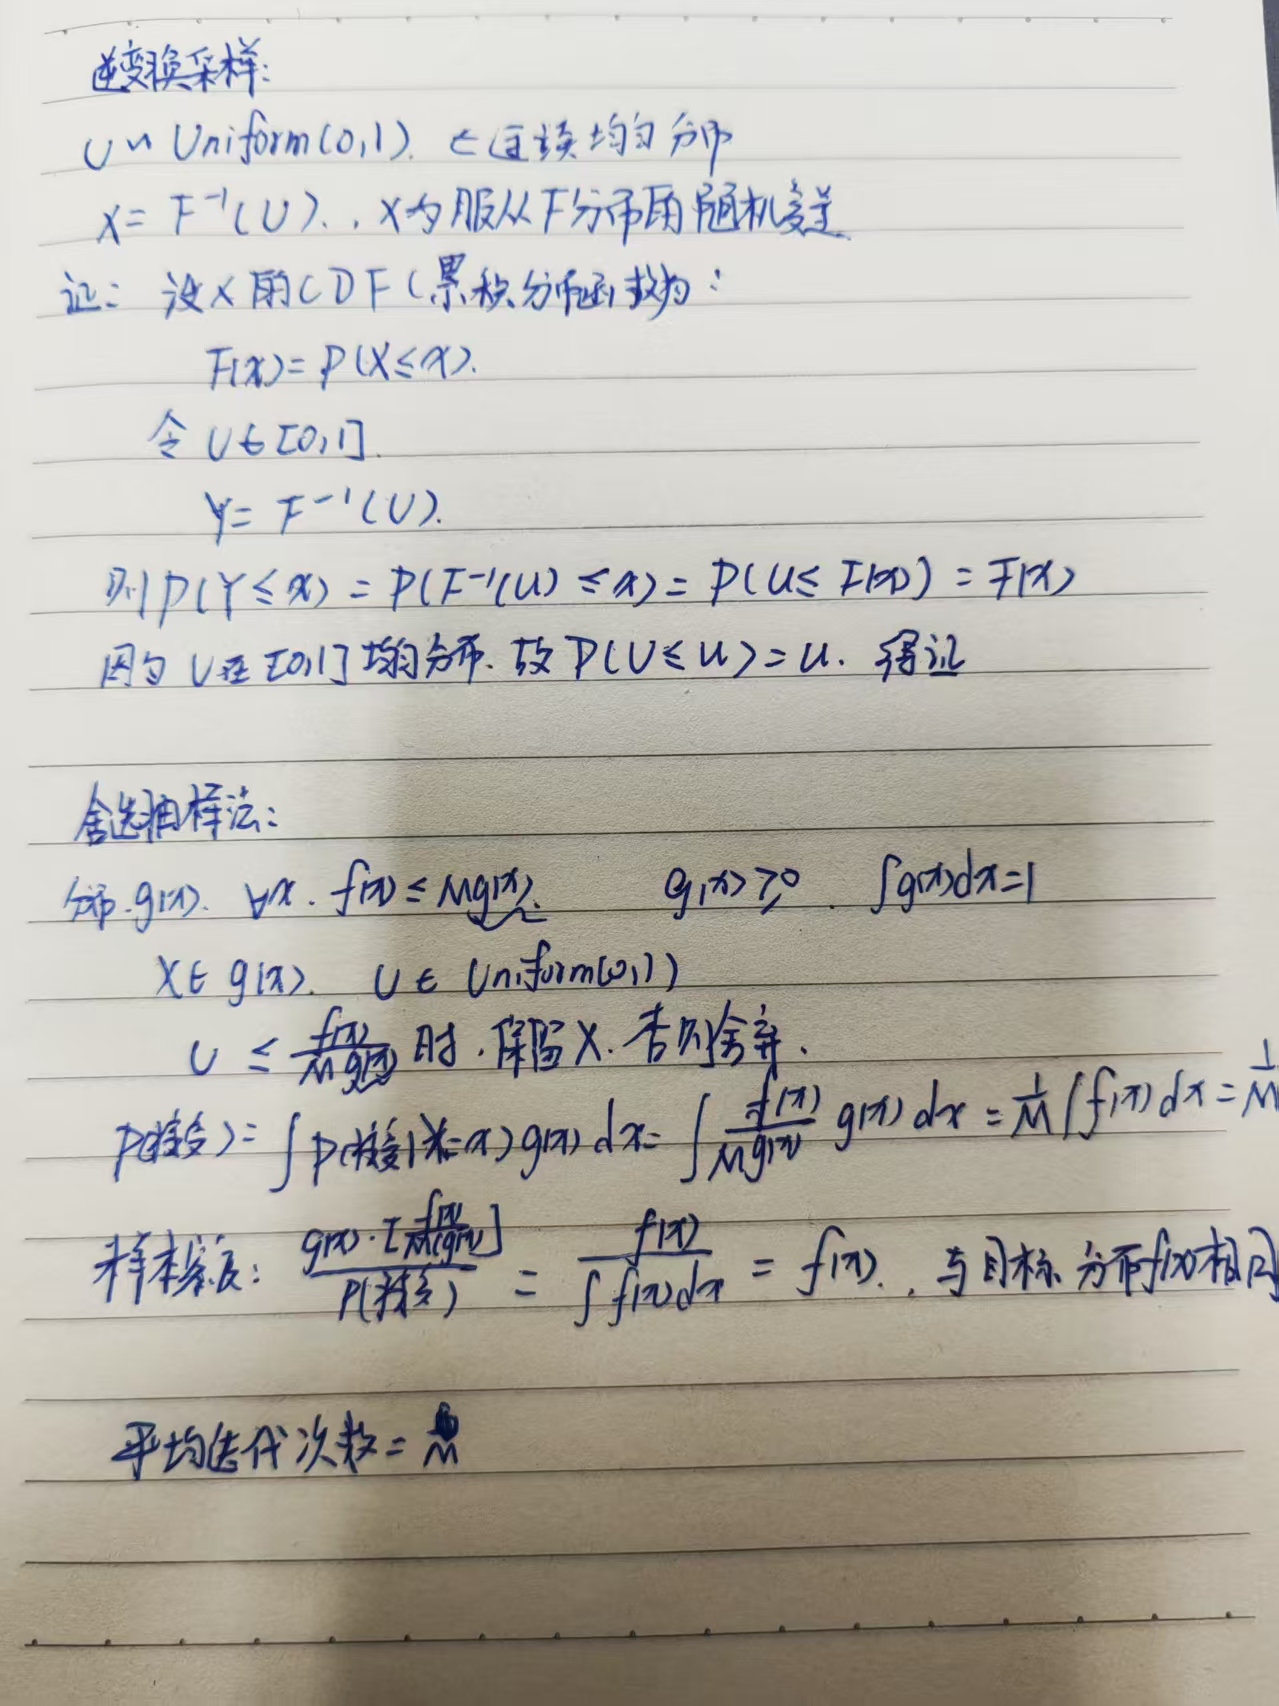 逆变换采样:
U ~ Uniform(0,1). ← 连续均匀分布
X = F⁻¹(U)., X为服从F分布的随机变量
证: 设X的CDF(累积分布函数为:
F(x)=P(X≤x).
令 U∈[0,1].
Y= F⁻¹(U).
则P(Y≤x) = P(F⁻¹(U)≤x)= P(U≤F(x)) = F(x)
因为 U在[0,1]均匀分布. 故 P(U≤u)=u. 得证
舍选抽样法:
分布 g(x). ∀x. f(x)≤Mg(x). g(x)≥0. ∫g(x)dx=1
X∈g(x). U∈Uniform(0,1)
U ≤ f(x)/Mg(x) 时.保留X.否则舍弃.
P(接受)= ∫P(接受|X=x)g(x)dx= ∫f(x)/Mg(x) g(x)dx = 1/M ∫f(x)dx = 1/M
样本密度: g(x)·[f(x)/M(g(x)]/P(接受) = f(x)/∫f(x)dx = f(x)., 与目标分布f(x)相同
平均迭代次数= M